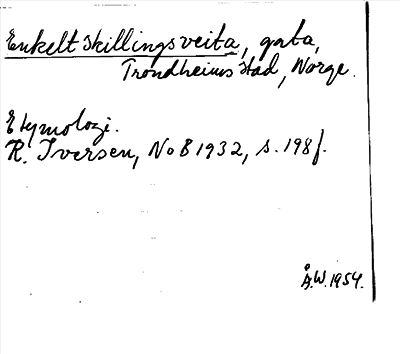 Enkelt skillingsveita, gata,
Trondheims stad, Norge.
Etymologi.
R. Iversen, NoB 1932, s. 198f.
Å.W. 1954.